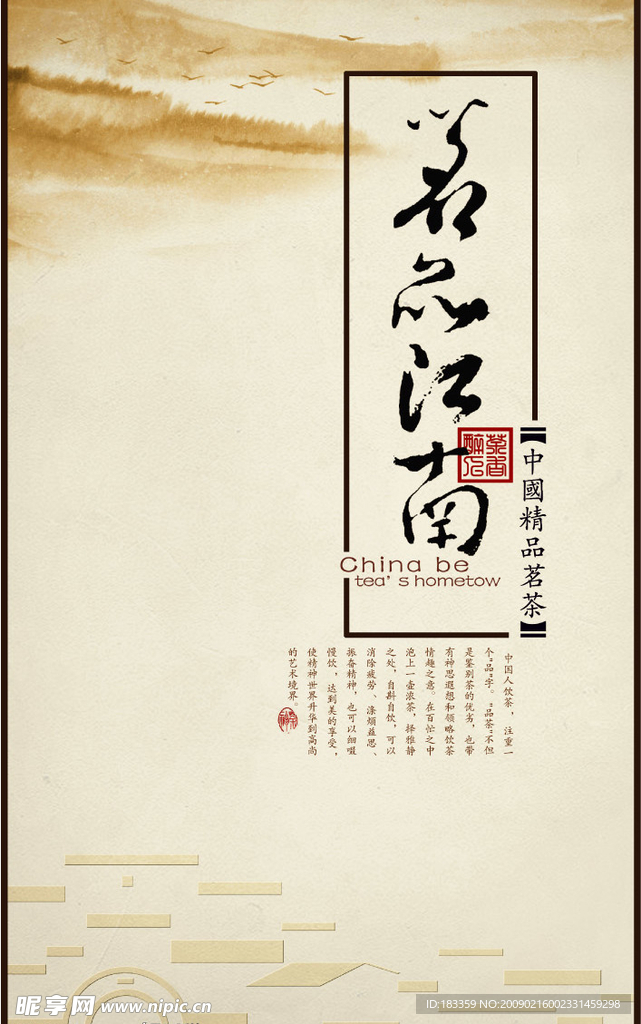 茗品江南
茶香
醉人
【中國精品茗茶】
China be
tea's hometow
中国人饮茶，注重一
个"品"字。"品茶"不但
是鉴别茶的优劣，也带
有神思遐想和领略饮茶
情趣之意。在百忙之中
泡上一壶浓茶，择雅静
之处，自斟自饮，可以
消除疲劳、涤烦益思、
振奋精神，也可以细啜
慢饮，达到美的享受，
使精神世界升华到高尚
的艺术境界。
昵享网 www.nipic.cn
ID:183359 NO:20090216002331459298